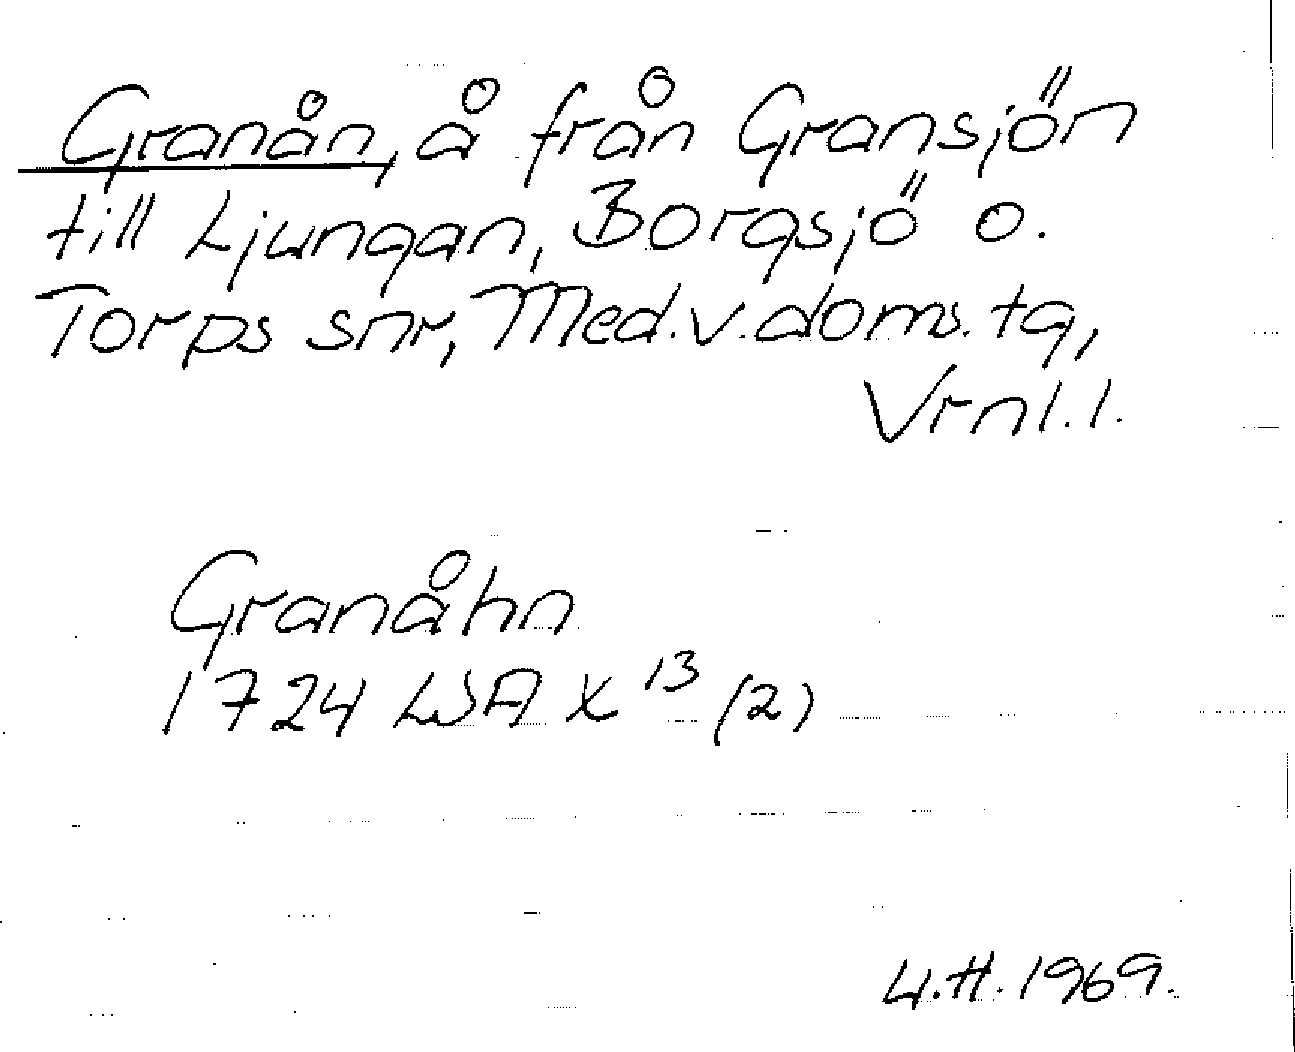 Granån, å från Gransjön
till Ljungan, Borgsjö o.
Torps snr, Med.v.doms.tg,
Vrnl.l.
Granåhn
1724 LSA X 13 (2)
U.H. 1969.